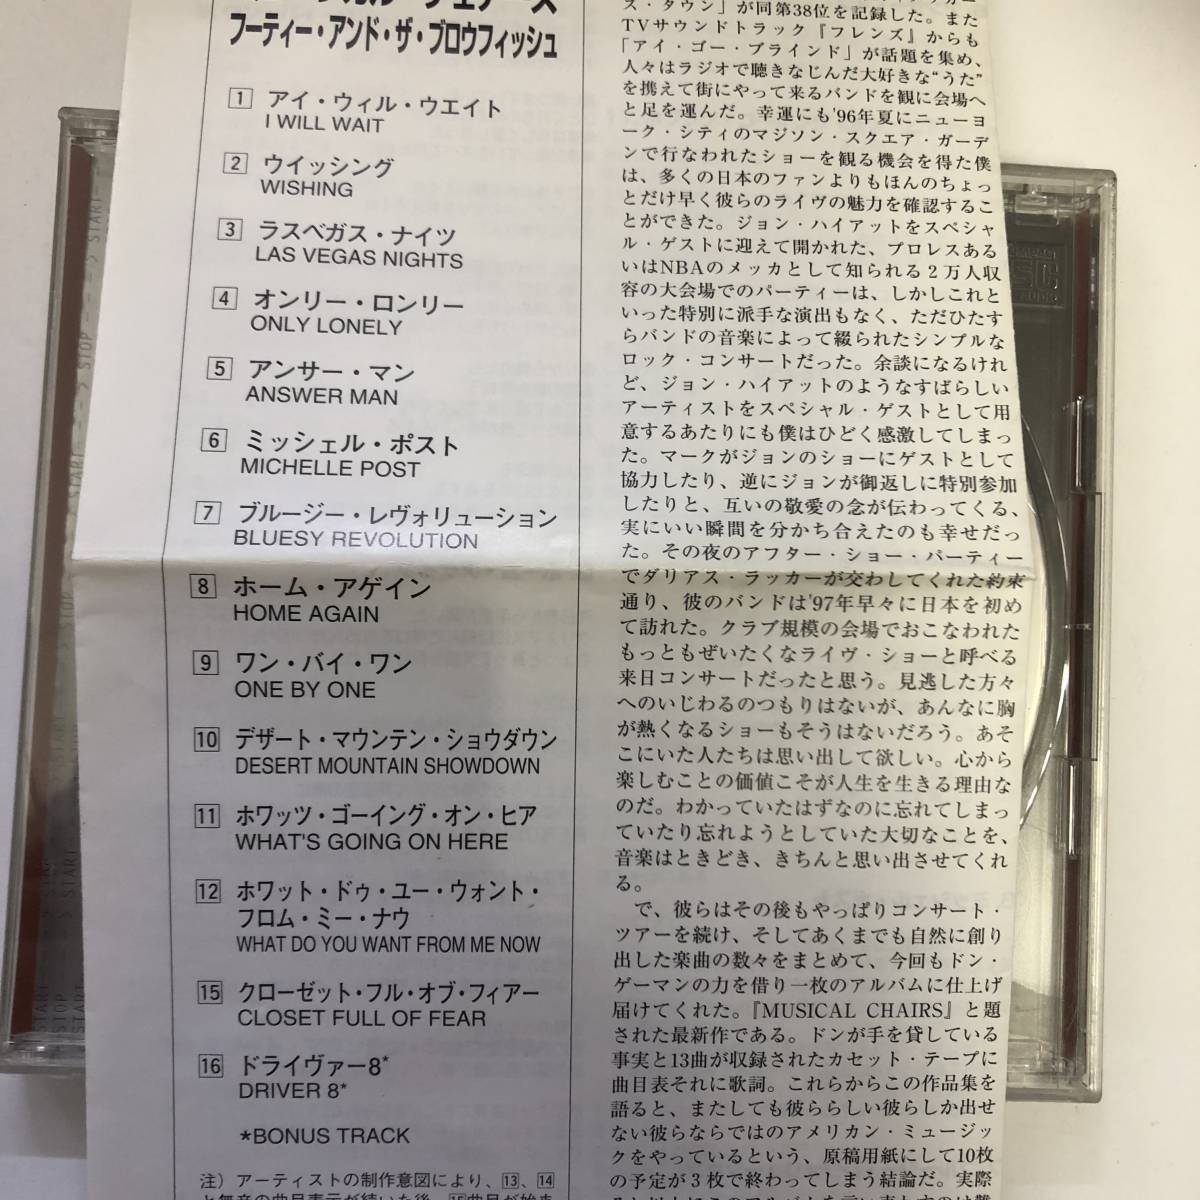 フーティー・アンド・ザ・ブロウフィッシュ
1 アイ・ウィル・ウエイト
I WILL WAIT
2 ウイッシング
WISHING
3 ラスベガス・ナイツ
LAS VEGAS NIGHTS
4 オンリー・ロンリー
ONLY LONELY
5 アンサー・マン
ANSWER MAN
6 ミッシェル・ポスト
MICHELLE POST
7 ブルージー・レヴォリューション
BLUESY REVOLUTION
8 ホーム・アゲイン
HOME AGAIN
9 ワン・バイ・ワン
ONE BY ONE
10 デザート・マウンテン・ショウダウン
DESERT MOUNTAIN SHOWDOWN
11 ホワッツ・ゴーイング・オン・ヒア
WHAT'S GOING ON HERE
12 ホワット・ドゥ・ユー・ウォント・
フロム・ミー・ナウ
WHAT DO YOU WANT FROM ME NOW
15 クローゼット・フル・オブ・フィアー
CLOSET FULL OF FEAR
16 ドライヴァー8*
DRIVER 8*
*BONUS TRACK
注）アーティストの制作意図により、13、14
ズ・タウン」が同第38位を記録した。また
TVサウンドトラック『フレンズ』からも
「アイ・ゴー・ブラインド」が話題を集め、
人々はラジオで聴きなじんだ大好きな“うた”
を携えて街にやって来るバンドを観に会場へ
と足を運んだ。幸運にも'96年夏にニューヨ
ーク・シティのマジソン・スクエア・ガーデ
ンで行なわれたショーを観る機会を得た僕
は、多くの日本のファンよりもほんのちょっ
とだけ早く彼らのライヴの魅力を確認するこ
とができた。ジョン・ハイアットをスペシャ
ル・ゲストに迎えて開かれた、プロレスある
いはNBAのメッカとして知られる2万人収
容の大会場でのパーティーは、しかしこれと
いった特別に派手な演出もなく、ただひたす
らバンドの音楽によって綴られたシンプルな
ロック・コンサートだった。余談になるけれ
ど、ジョン・ハイアットのようなすばらしい
アーティストをスペシャル・ゲストとして用
意するあたりにも僕はひどく感激してしまっ
た。マークがジョンのショーにゲストとして
協力したり、逆にジョンが御返しに特別参加
したりと、互いの敬愛の念が伝わってくる、
実にいい瞬間を分かち合えたのも幸せだっ
た。その夜のアフター・ショー・パーティー
でダリアス・ラッカーが交わしてくれた約束
通り、彼のバンドは'97年早々に日本を初め
て訪れた。クラブ規模の会場でおこなわれた
もっともぜいたくなライヴ・ショーと呼べる
来日コンサートだったと思う。見逃した方々
へのいじわるのつもりはないが、あんなに胸
が熱くなるショーもそうはないだろう。あそ
こにいた人たちは思い出して欲しい。心から
楽しむことの価値こそが人生を生きる理由な
のだ。わかっていたはずなのに忘れてしまっ
ていたり忘れようとしていた大切なことを、
音楽はときどき、きちんと思い出させてくれ
る。
で、彼らはその後もやっぱりコンサート・
ツアーを続け、そしてあくまでも自然に創り
出した楽曲の数々をまとめて、今回もドン・
ゲーマンの力を借り一枚のアルバムに仕上げ
届けてくれた。『MUSICAL CHAIRS』と題
された最新作である。ドンが手を貸している
事実と13曲が収録されたカセット・テープに
曲目表それに歌詞。これらからこの作品集を
語ると、またしても彼ららしい彼らしか出せ
ない彼らならではのアメリカン・ミュージッ
クをやっているという、原稿用紙にして10枚
の予定が3枚で終わってしまう結論だ。実際